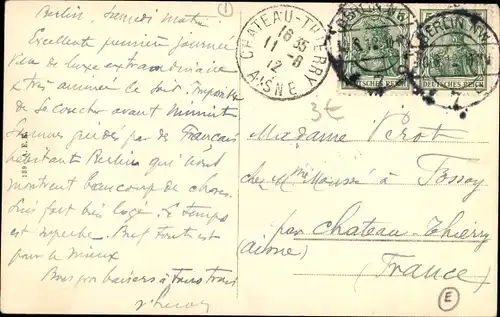 Berlin, Samedi matin
Excellente première journée
Ville de luxe extraordinaire
très animée le soir. Impossible
de se coucher avant minuit
Sommes guidés par des Français
habitant Berlin qui nous
montrent beaucoup de choses
Suis fort bien logé. Le temps
est superbe. Bref tout est
pour le mieux
Bons gros baisers à tous trois
CHATEAU-THIERRY
16 35
11 -6
12
AISNE
BERLIN NW
DEUTSCHES REICH
BERLIN NW
DEUTSCHES REICH
3€
Madame Perot
chez Mme à Fossoy
par Château-Thierry
(Aisne)
(France)
E